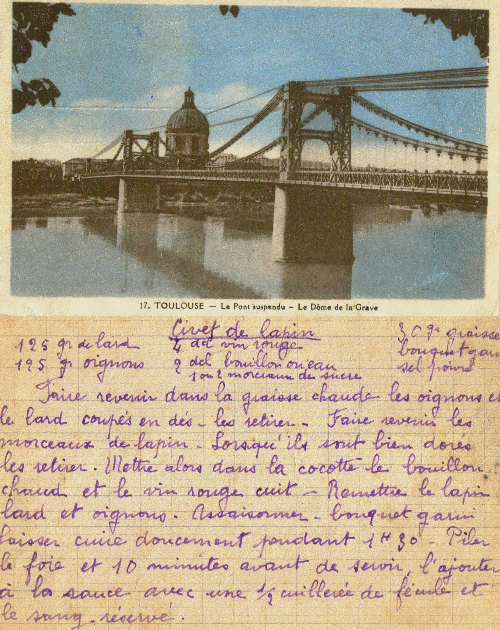 17. TOULOUSE — Le Pont suspendu – Le Dôme de la Grave
Civet de lapin
125 gr de lard 4 dcl vin rouge 30 gr graisse
125 gr oignons 2 dcl bouillon ou eau bouquet garni
1 ou 2 morceaux de sucre sel poivre
Faire revenir dans la graisse chaude les oignons et
le lard coupés en dés - les retirer - Faire revenir les
morceaux de lapin - Lorsqu'ils sont bien dorés
les retirer. Mettre alors dans la cocotte le bouillon
chaud et le vin rouge cuit - Remettre le lapin
lard et oignons. Assaisonner - bouquet garni
laisser cuire doucement pendant 1H30 - Piler
le foie et 10 minutes avant de servir, l'ajouter
à la sauce avec une 1/2 cuillerée de fécule et
le sang réservé.